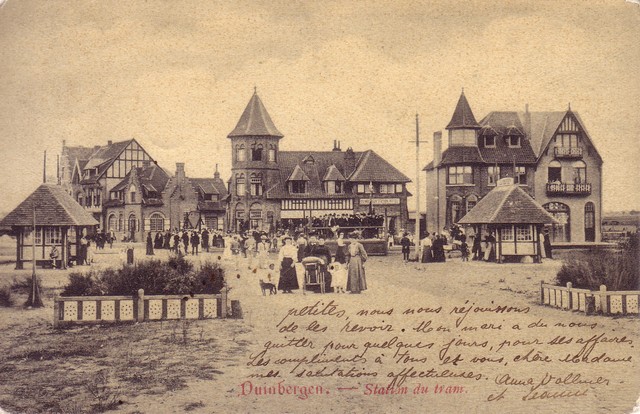 petites, nous nous réjouissons
de les revoir. Mon mari a du nous
quitter pour quelques jours, pour ses affaires.
Les compliments à tous et vous, chère Madame
mes salutations affectueuses.
Anna Vollmer
et Jeanne
Duinbergen. — Station du tram.